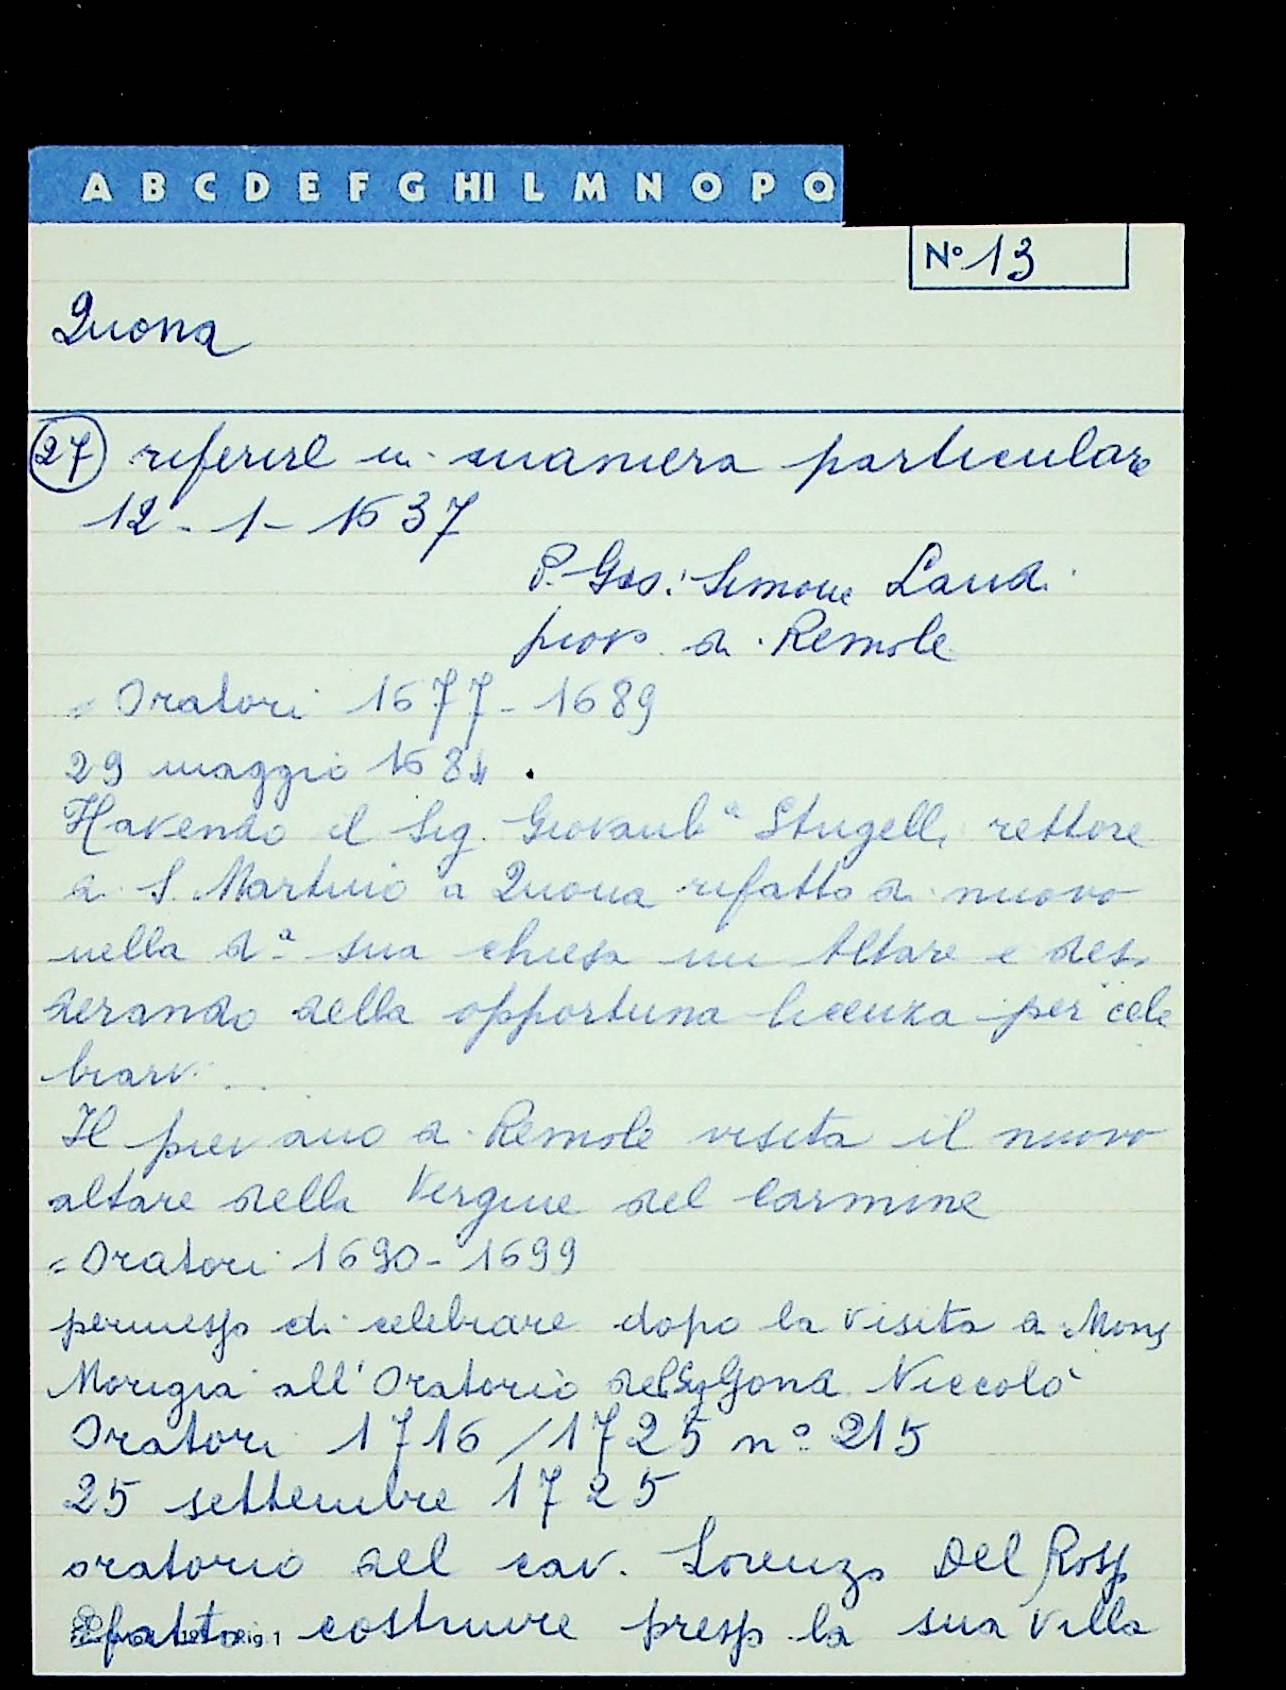 A B C D E F G HI L M N O P Q
N° 13
Quona
27 riferire in maniera particulare
12-1-1637
P. Gio: Simone Landi
piov° di Remole
= Oratori 1677-1689
29 maggio 1684
Havendo il Sig. Giovanb.a Stugelli rettore
di S. Martino a Quona rifatto di nuovo
nella d.a sua chiesa un Altare e desi
derando della opportuna licenza per cele
brarvi...
Il pievano di Remole visita il nuovo
altare della Vergine del Carmine
= Oratori 1690-1699
permesso di celebrare dopo la visita di Mons
Morigia all'Oratorio del Sig Niccolò
Oratori 1716/1725 n° 215
25 settembre 1725
oratorio del cav. Lorenzo Del Rosso
fatto costruire presso la sua villa